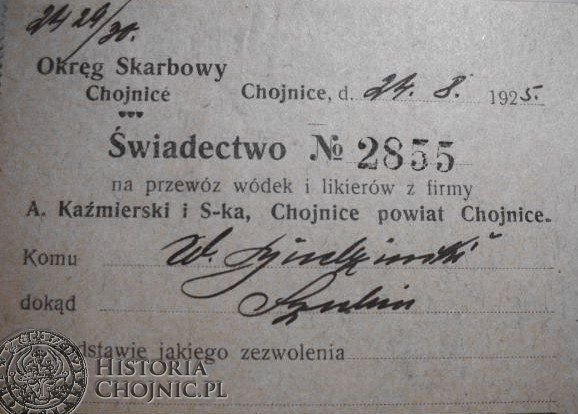 2429/30.
Okręg Skarbowy
Chojnice
Chojnice, d. 24. 8. 1925.
Świadectwo № 2855
na przewóz wódek i likierów z firmy
A. Kaźmierski i S-ka, Chojnice powiat Chojnice.
Komu W.
dokąd Szubin
dstawie jakiego zezwolenia
HISTORIA
CHOJNIC.PL